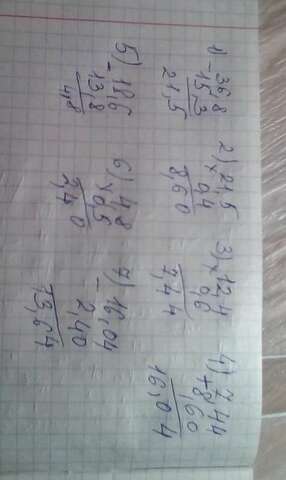 1) - 36,8
15,3
21,5
2) x 21,5
0,4
8,60
3) x 12,4
0,6
7,44
4) + 7,44
8,60
16,04
5) - 18,6
13,8
4,8
6) x 4,8
0,5
2,40
7) - 16,04
2,40
13,64